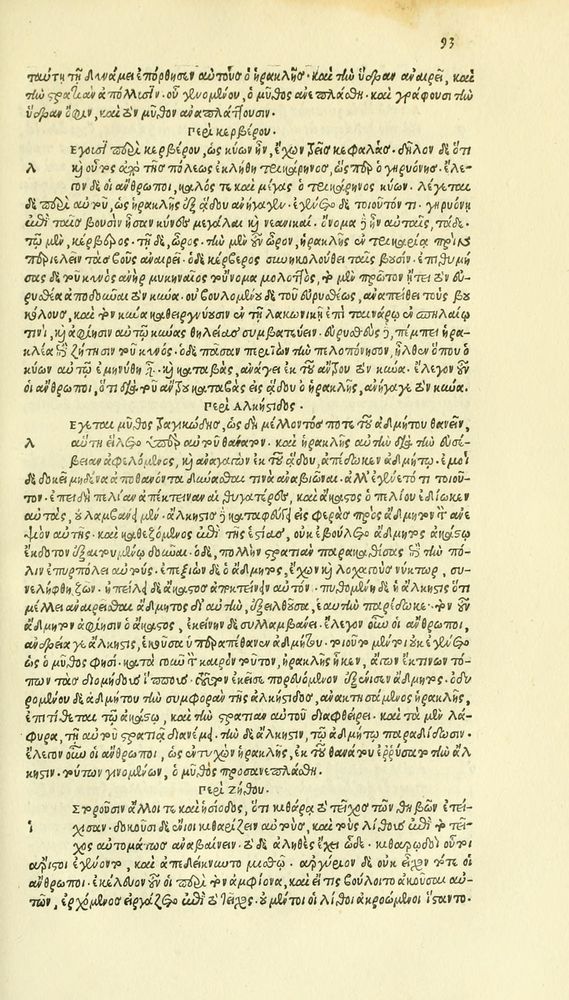 93
ταύτῃ τῇ δυνάμει ἐπόρθησεν αὐτοὺσ ὁ ἡρακλῆσ· καὶ τὴν ὕδραν ἀναιρεῖ, καὶ
τὴν στρατιὰν ἀπόλλυσιν. οὗ γενομένου, ὁ μῦθος ἀνεπλάσθη. καὶ γράφουσι τὴν
ὕδραν ὄφιν, καὶ τὸν μῦθον ἀναπλάττουσιν.
Περὶ κερβέρου.
Εγεται περὶ κερβέρου, ὡς κύων ἦν, ἔχων τρεῖσ κεφαλάσ. δῆλον δὲ ὅτι
λ καὶ οὗτος ἀπὸ τῆσ πόλεως ἐκλήθη τρικάρηνοσ, ὥσπερ ὁ γηρυόνησ. ἔλε-
γον δὲ οἱ ἄνθρωποι, καλός τε καὶ μέγας ὁ τρικάρηνος κύων. λέγεται
δὲ περὶ αὐτοῦ, ὡς ἡρακλῆς ἐξ ᾅδου ἀνήγαγεν. ἐγένετο δὲ τοιοῦτόν τι. γηρυόνῃ
ἐπὶ ταῖσ βουσὶν ἦσαν κύνεσ μεγάλαι καὶ νεανικαί. ὄνομα δ' ἦν αὐταῖς, τάδε.
τῷ μὲν, κέρβερος· τῇ δὲ, ὦρος. τὸν μὲν οὖν ὦρον, ἡρακλῆς ἐν τρικαρηνίᾳ πρὶν
περιελεῖν τὰσ βοῦς ἀναιρεῖ. ὁ δὲ κέρβερος συνηκολούθει ταῖς βουσίν. ἐπιθυμή
σας δὲ τοῦ κυνὸς ἀνὴρ μυκηναῖος τοὔνομα μολοττὸς, τὸ μὲν πρῶτον ᾔτει τὸν εὐ-
ρυσθέα ἀποδόσθαι τὸν κύνα. οὐ βουλομένου δὲ τοῦ εὐρυσθέως, ἀναπείθει τοὺς βου
κόλους, καὶ τὸν κύνα καθειργνύσιν ἐν τῇ λακωνικῇ ἐπὶ ταινάρῳ ἐν σπηλαίῳ
τινὶ, καὶ ἀφίησιν αὐτῷ κύνας θηλείασ συμβατεύειν. εὐρυσθεὺς δὲ, πέμπει ἡρα-
κλέα ἐπὶ ζήτησιν τοῦ κυνός. ὁ δὲ πᾶσαν περιϊὼν τὴν πελοπόνησον, ἦλθεν ὅπου ὁ
κύων αὐτῷ ἐμηνύθη εἶναι. καὶ καταβὰς, ἀνάγει ἐκ τοῦ ἄντρου τὸν κύνα. ἔλεγον οὖν
οἱ ἄνθρωποι, ὅτι διὰ τοῦ ἄντρου καταβὰς εἰς ᾅδου ὁ ἡρακλῆς, ἀνήγαγε τὸν κύνα.
Περὶ Αλκήστιδος.
Εγεται μῦθος τραγικώδησ, ὡς δὴ μέλλοντόσ ποτε τοῦ ἀδμήτου θανεῖν,
λ αὕτη εἵλετο ὑπὲρ αὐτοῦ θάνατον. καὶ ἡρακλῆς αὐτὴν διὰ τὴν εὐσέ-
βειαν ἀφελόμενος, καὶ ἀναγαγὼν ἐκ τοῦ ᾅδου, ἀπέδωκεν ἀδμήτῳ. ἐμοὶ
δὲ δοκεῖ μηδένα ἀποθανόντα δύνασθαί τινα ἀναβιῶναι. ἀλλ' ἐγένετό τι τοιοῦ-
τον. ἐπειδὴ πελίαν ἀπέκτειναν αἱ θυγατέρεσ, καὶ ἄκαστος ὁ πελίου ἐδίωκεν
αὐτὰς, συλλαμβάνει μὲν. ἄλκηστισ δὲ καταφεύγει εἰς φερὰσ πρὸς ἄδμητον τὸν ἀνε
ψιὸν αὐτῆς. καὶ καθεζομένησ ἐπὶ τῆσ ἑστίασ, οὐκ ἐβούλετο ἄδμητος ἀκάστῳ
ἔκδοτον ἐξαιτουμένῳ δοῦναι. ὁ δὲ, πολλὴν στρατιὰν παρακαθίσας ἐπὶ τὴν πό-
λιν ἐπυρπόλει αὐτούς. ἐπεξιὼν δὲ ὁ ἄδμητος, ἔχων καὶ λοχαγοὺσ νύκτωρ, συ-
νελήφθη ζῶν. ἠπείλει δὲ ἄκαστοσ ἀποκτείνειν αὐτόν. πυθομένη δὲ ἡ ἄλκηστις ὅτι
μέλλει ἀναιρεῖσθαι ἄδμητος δι' αὐτὴν, ἐξελθοῦσα, ἑαυτὴν παρέδωκε. τὸν οὖν
ἄδμητον ἀφίησιν ὁ ἄκαστος, ἐκείνην δὲ συλλαμβάνει. ἔλεγον οὖν οἱ ἄνθρωποι,
ἀνδρεία γε ἄλκηστις, ἑκοῦσα ὑπεραπέθανεν ἀδμήτου. τοιοῦτο μέντοι οὐκ ἐγένετο
ὡς ὁ μῦθός φησι. κατὰ γοῦν τὸν καιρὸν τοῦτον, ἡρακλῆς ἧκεν, ἄγων ἔκ τινων τό-
πων τὰσ διομήδουσ ἵππουσ. τοῦτον ἐκεῖσε πορευόμενον ἐξένισεν ἄδμητος. ὀδυ
ρομένου δὲ ἀδμήτου τὴν συμφορὰν τῆς ἀλκήστιδοσ, ἀνακτησάμενος ἡρακλῆς,
ἐπιτίθεται τῷ ἀκάστῳ, καὶ τὴν στρατιὰν αὐτοῦ διαφθείρει. καὶ τὰ μὲν λά-
φυρα, τῇ αὐτοῦ στρατιᾷ διανέμει. τὴν δὲ ἄλκηστιν, τῷ ἀδμήτῳ παραδίδωσιν.
ἔλεγον οὖν οἱ ἄνθρωποι, ὡς ἐντυχὼν ἡρακλῆς, ἐκ τοῦ θανάτου ἐρρύσατο τὴν ἄλ
κηστιν. τούτων γινομένων, ὁ μῦθος προσανεπλάσθη.
Περὶ Ζήθου.
Στοροῦσιν ἄλλοι τε καὶ ἡσίοδος, ὅτι κιθάρᾳ τὸ τεῖχος τῶν θηβῶν ἐτεί-
ἱ χισαν. δοκοῦσι δὲ ἔνιοι κιθαρίζειν αὐτοὺσ, καὶ τοὺς λίθουσ ἐπὶ τὸ τεῖ-
χος αὐτομάτωσ ἀναβαίνειν. τὸ δὲ ἀληθὲς ἔχει ὧδε. κιθαρῳδοὶ οὗτοι
ἄριστοι ἐγένοντο, καὶ ἀπεδείκνυντο μισθῷ. ἀργύριον δὲ οὐκ εἶχον τότε οἱ
ἄνθρωποι. ἐκέλευον οὖν οἱ περὶ τὸν ἀμφίονα, καὶ εἴ τις βούλοιτο ἀκοῦσαι αὐ-
τῶν, ἐρχόμενοσ εἰργάζετο ἐπὶ τὸ τεῖχος. οὐ μέντοι οἱ λίθοι ἀκροώμενοι ἵσταντο.